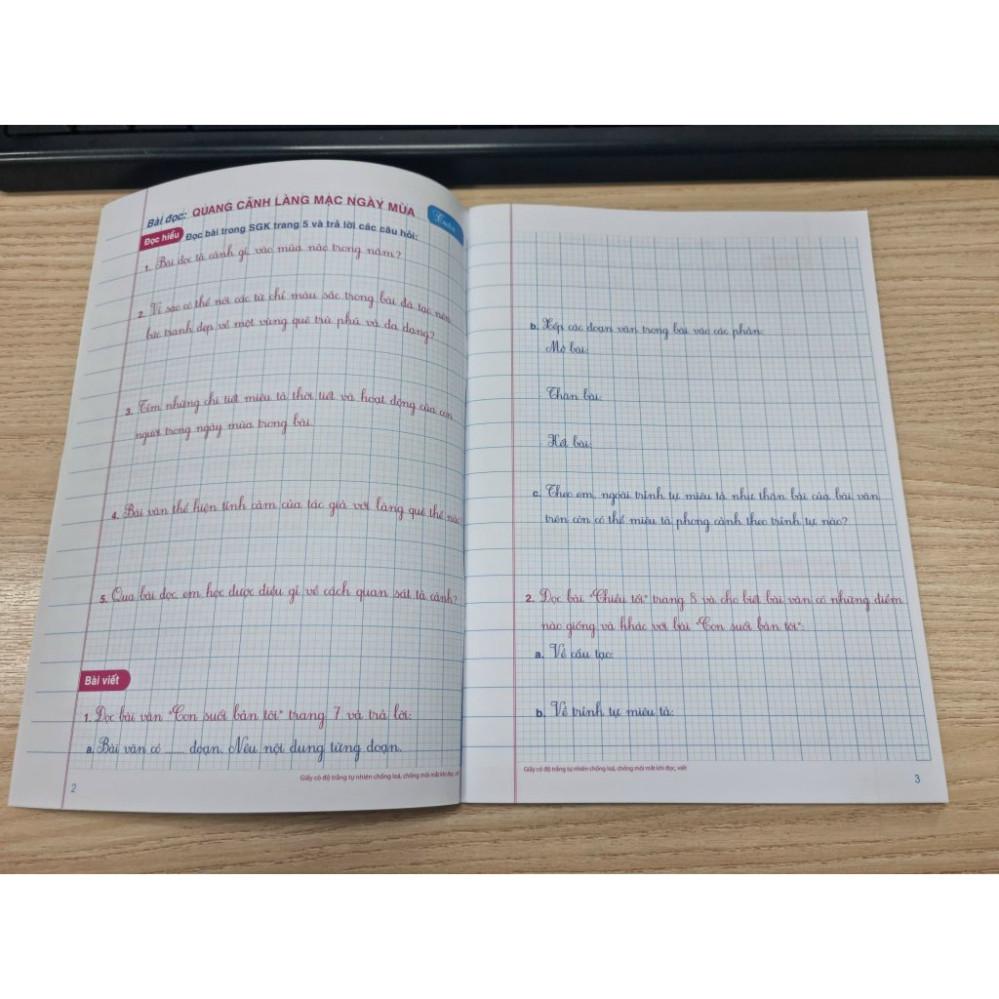 Bài đọc: QUANG CẢNH LÀNG MẠC NGÀY MÙA
Đọc hiểu Đọc bài trong SGK trang 5 và trả lời các câu hỏi:
1. Bài đọc tả cảnh gì, vào mùa nào trong năm?
2. Vì sao có thể nói các từ chỉ màu sắc trong bài đã tạo nên
bức tranh đẹp về một vùng quê trù phú và đa dạng?
3. Tìm những chi tiết miêu tả thời tiết và hoạt động của con
người trong ngày mùa trong bài.
4. Bài văn thể hiện tình cảm của tác giả với làng quê thế nào
5. Qua bài đọc em học được điều gì về cách quan sát tả cảnh?
Bài viết
1. Đọc bài văn "Con suối bản tôi" trang 7 và trả lời:
a. Bài văn có ..... đoạn. Nêu nội dung từng đoạn.
Giấy có độ trắng tự nhiên chống loá, chống mỏi mắt khi đọc, viết
2
b. Xếp các đoạn văn trong bài vào các phần:
Mở bài:
Thân bài:
Kết bài:
c. Theo em, ngoài trình tự miêu tả như thân bài của bài văn
trên còn có thể miêu tả phong cảnh theo trình tự nào?
2. Đọc bài "Chiều tối" trang 8 và cho biết bài văn có những điểm
nào giống và khác với bài "Con suối bản tôi":
a. Về cấu tạo:
b. Về trình tự miêu tả:
Giấy có độ trắng tự nhiên chống loá, chống mỏi mắt khi đọc, viết
3